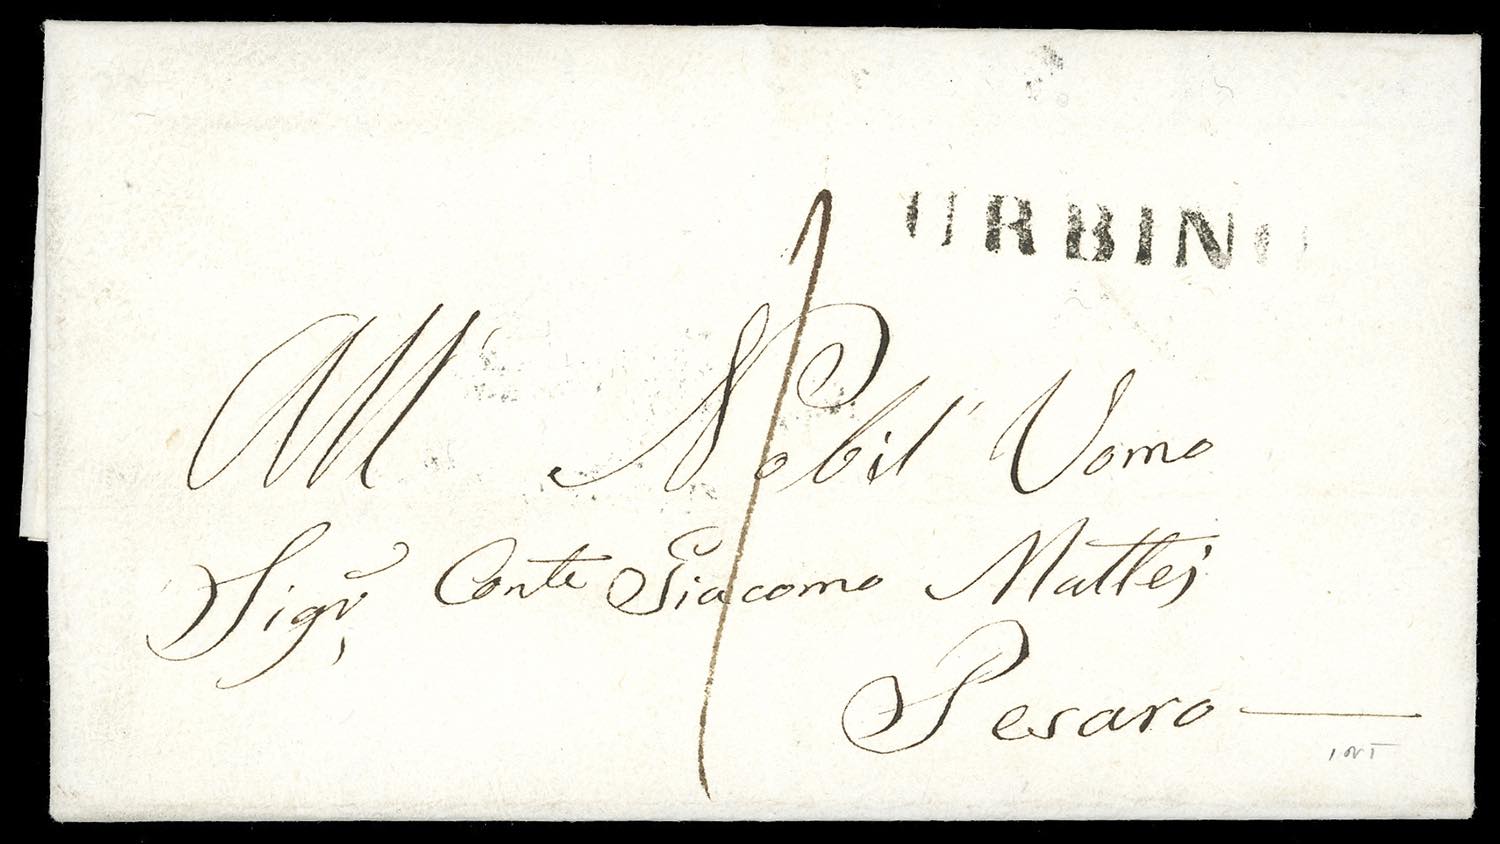 URBINO
1
All' Nobil' Uomo
Sigr, Conte Giacomo Mattej
Pesaro